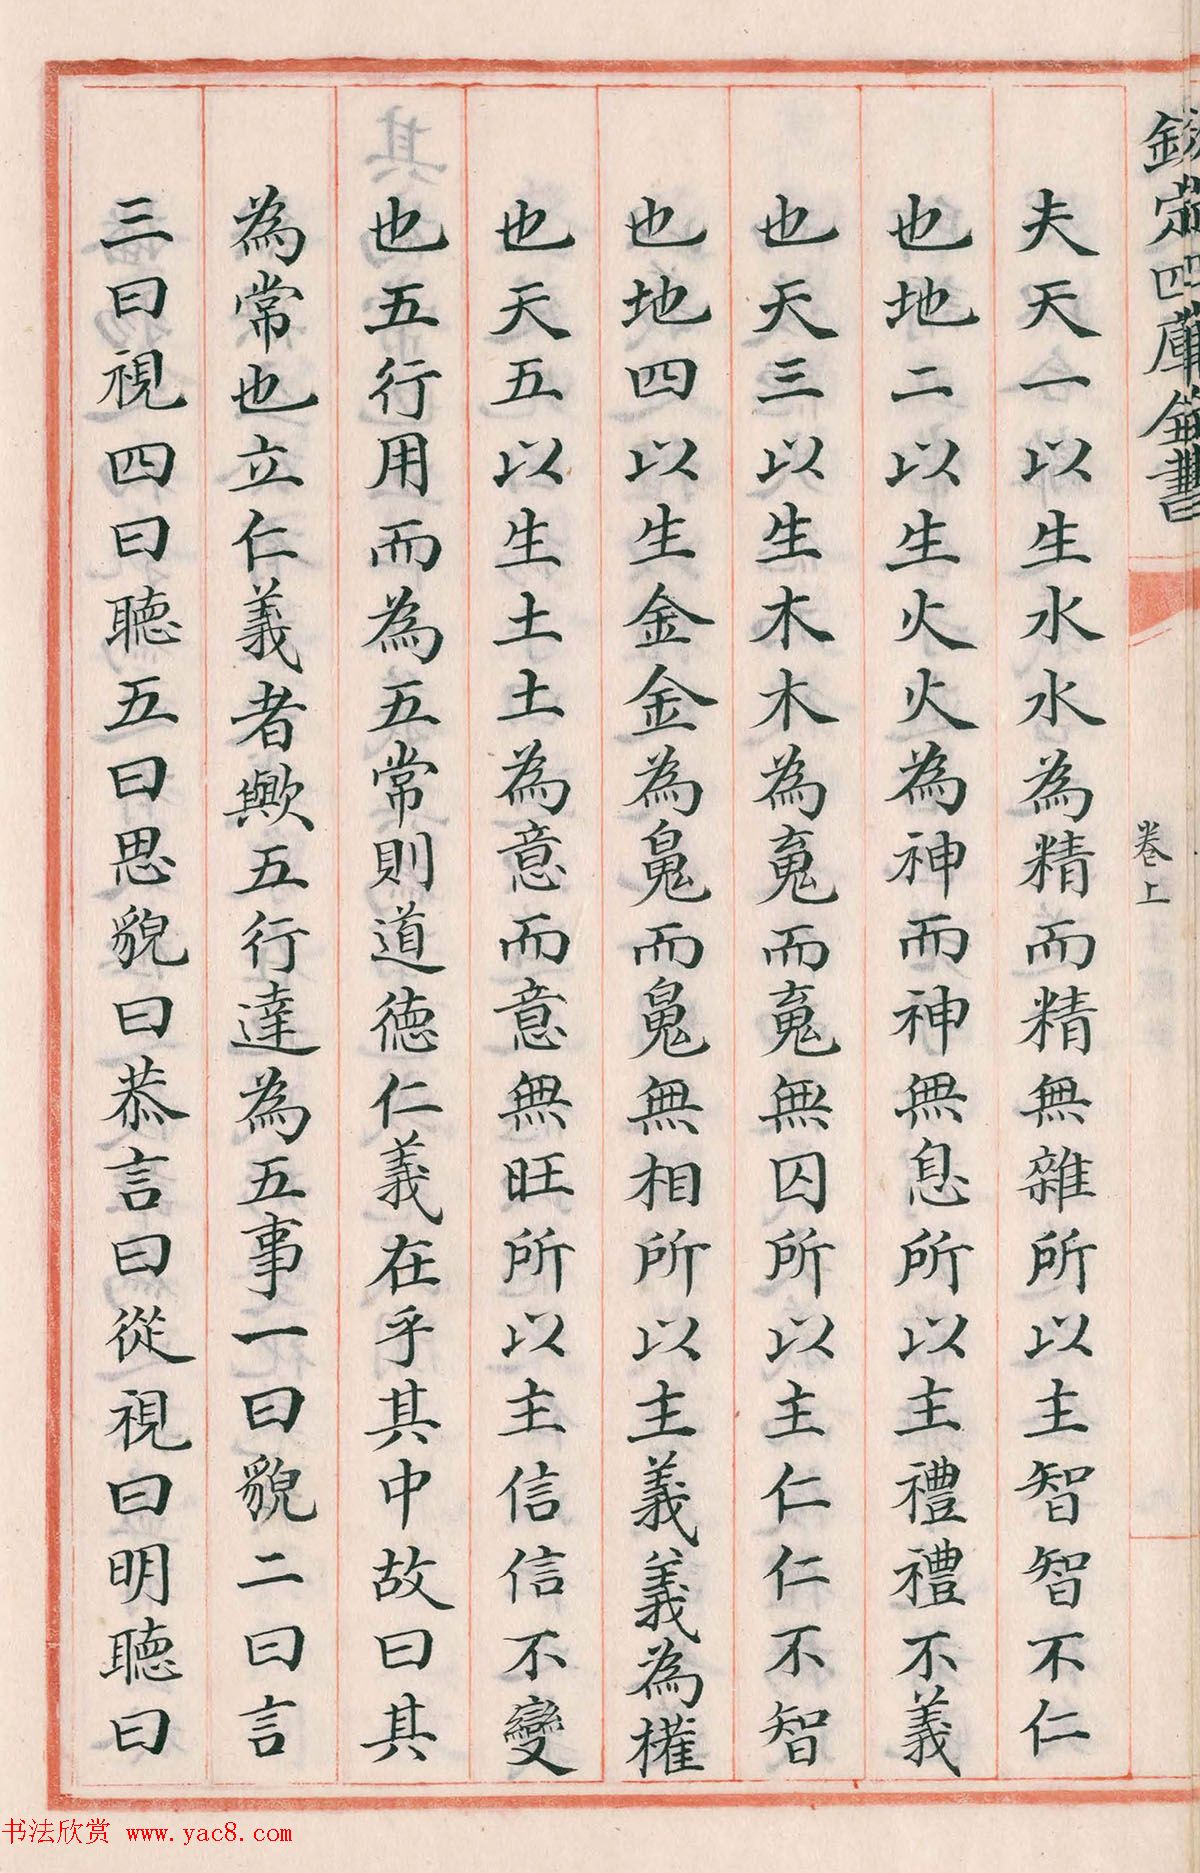 欽定四庫全書
卷上
夫天一以生水水為精而精無雜所以主智智不仁
也地二以生火火為神而神無息所以主禮禮不義
也天三以生木木為䰟而䰟無囚所以主仁仁不智
也地四以生金金為鬽而鬽無相所以主義義為權
也天五以生土土為意而意無旺所以主信信不變
也五行用而為五常則道德仁義在乎其中故曰其
為常也立仁義者歟五行達為五事一曰貌二曰言
三曰視四曰聽五曰思貌曰恭言曰從視曰明聽曰
书法欣赏 www.yac8.com